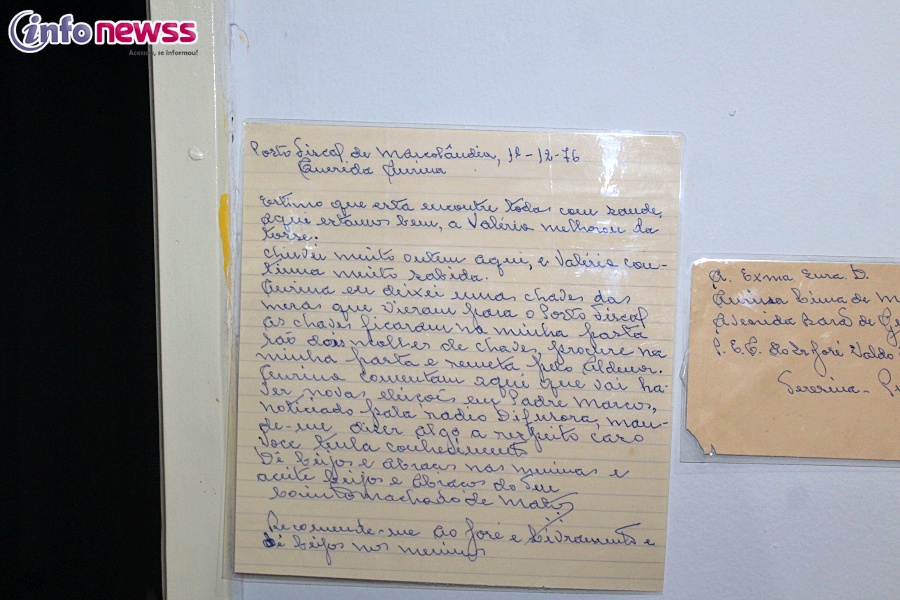 infonewss
Acessou, se informou!
Posto Fiscal de Marcolândia, 12-76
Querida Aurina
Estimo que esta encontre todas com saude,
aqui estamos bem, a Valéria melhorou da
tosse.
Chuveu muito ontem aqui, e Valéria con-
tinua muito sabida.
Aurina eu deixei umas chaves das
que vieram para o Posto Fiscal
as chaves ficaram na minha pasta
são dois molhes de chaves, procure na
minha pasta e remeta pelo
Aurina comentam aqui que vai ha-
ver novas eleiçoes em Padre Marcos,
noticiado pala radio Difusora, man-
de-me dizer algo a respeito caso
voce tenha conhecimento
Dê beijos e abraços nas meninas e
aceite beijos e abraços do seu
Machado de Matos
Recomende-me ao José e Livramento e
dê beijos nos meninos
A. Exma Snra D.
Lima de M
Avenida Barão de
José Valdo
Teresina - P